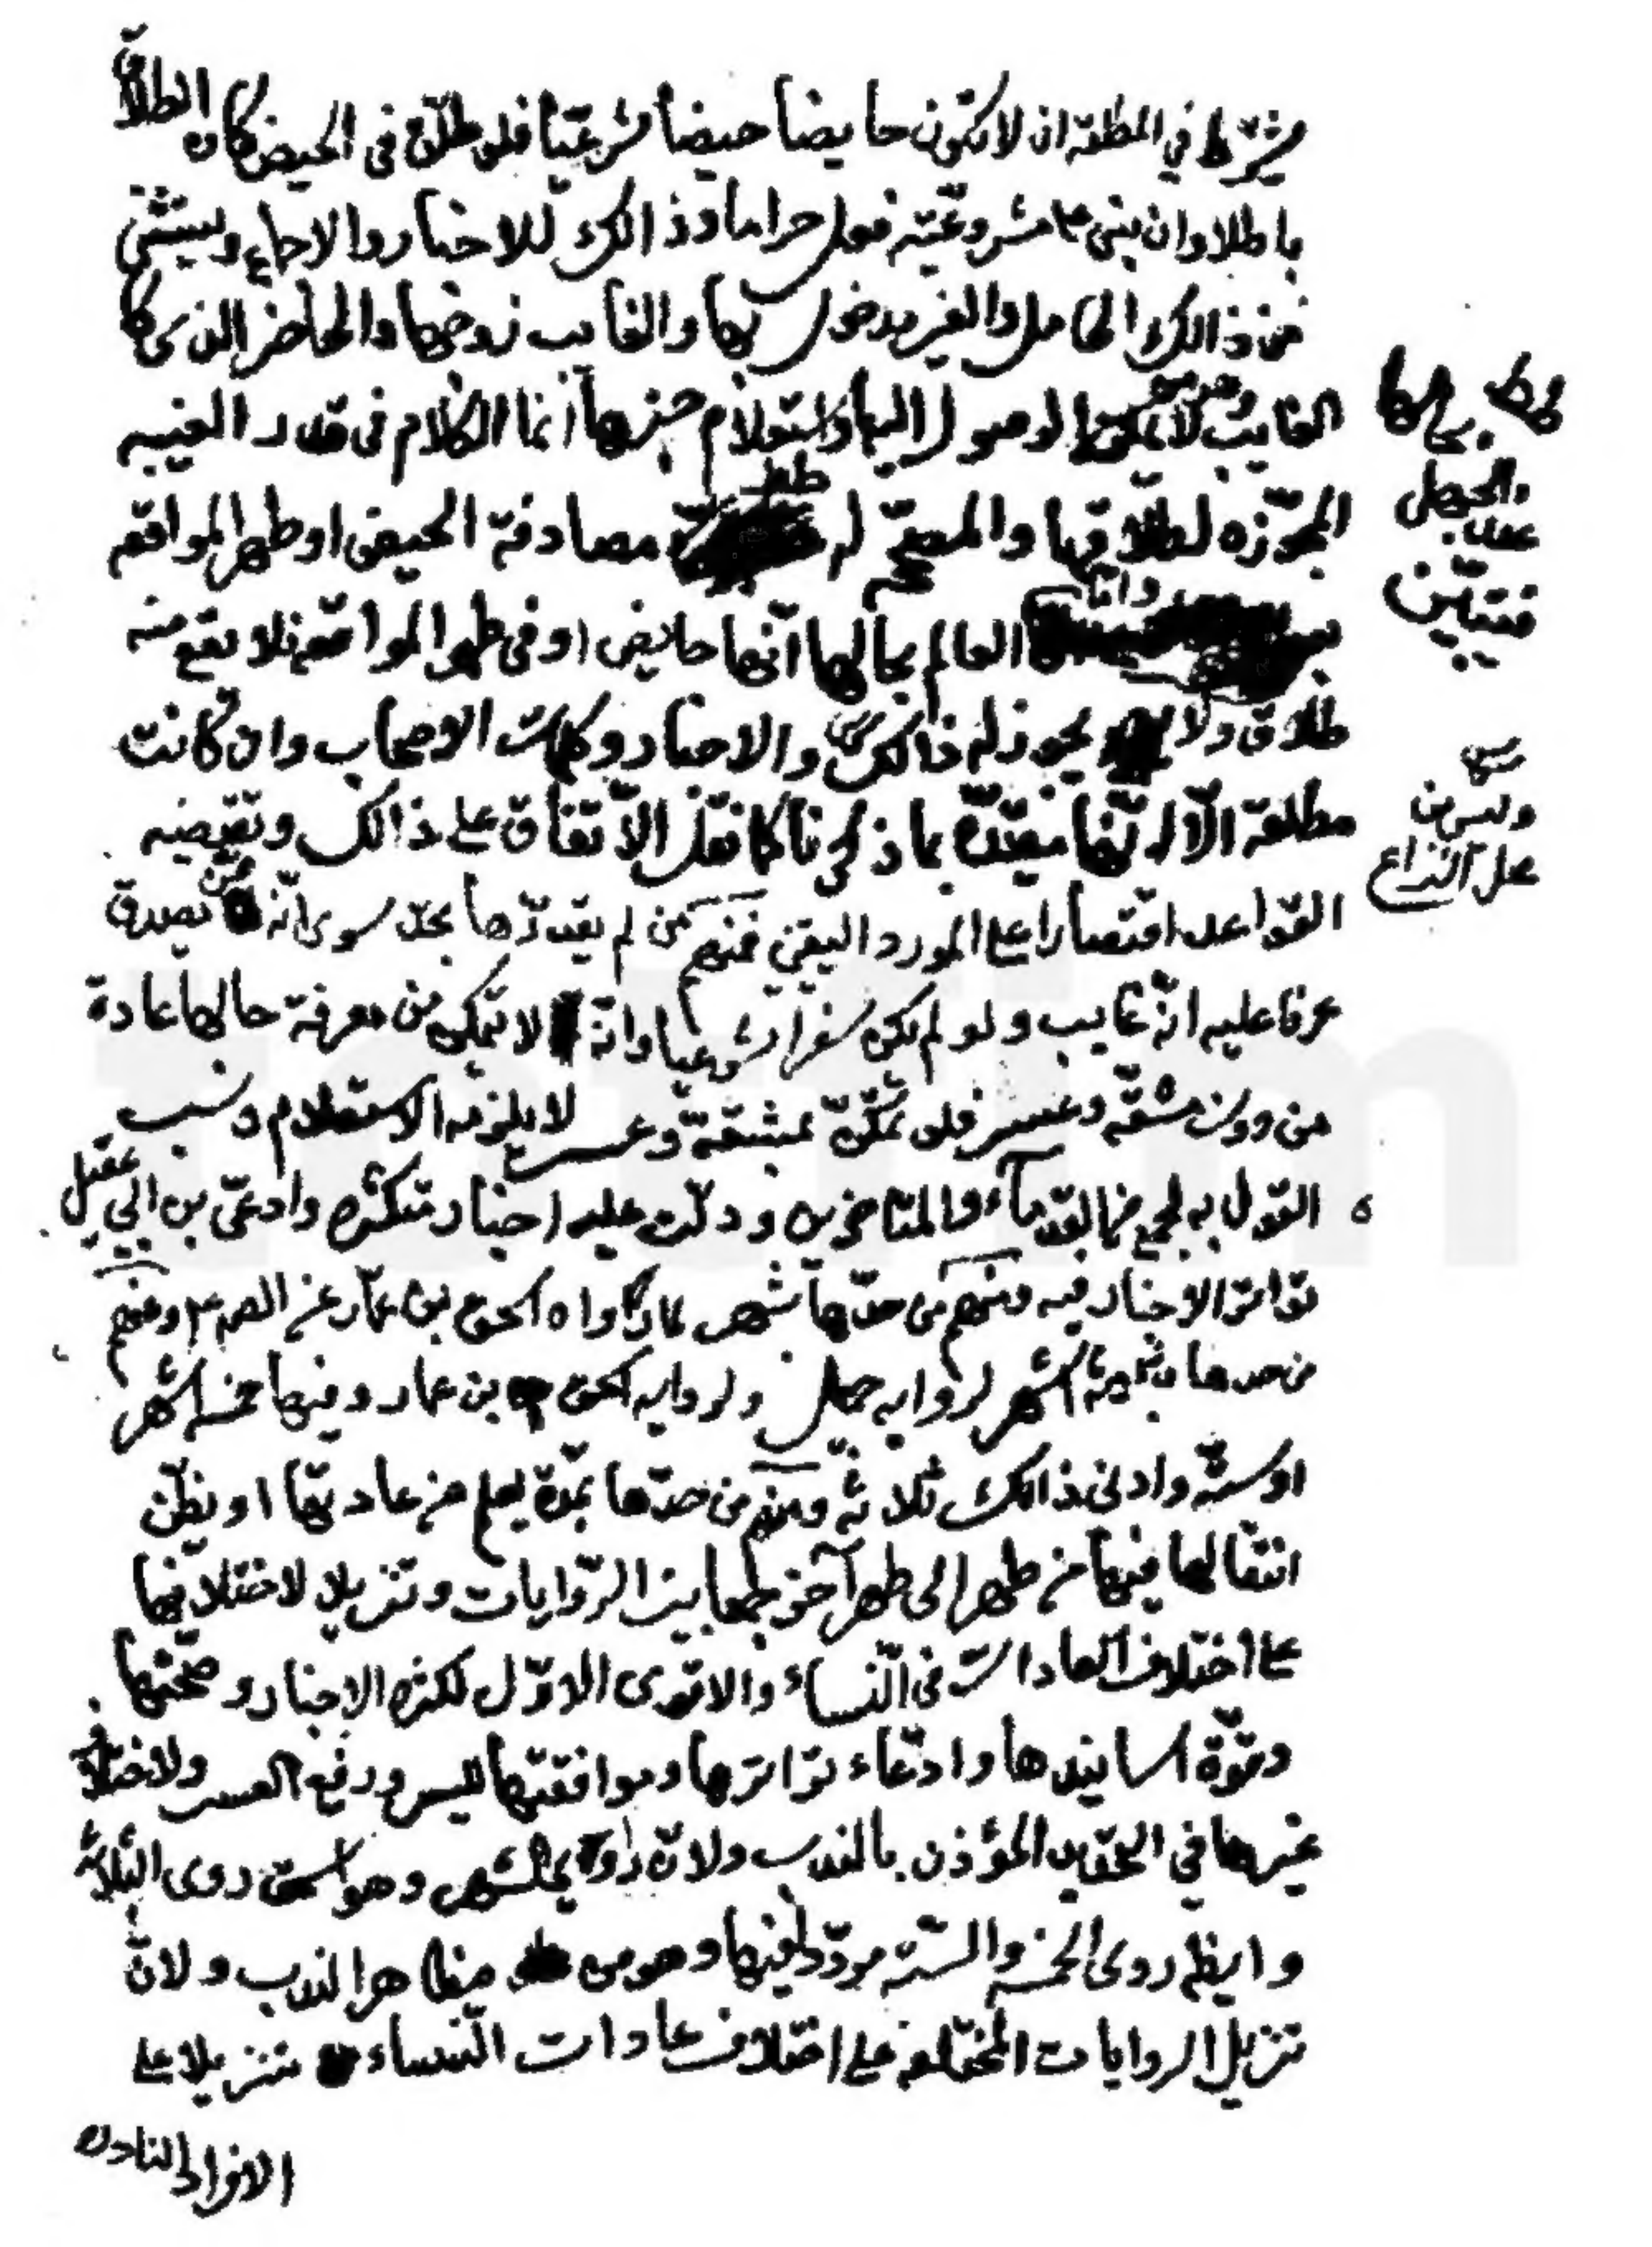 يشترط في المطلقة ان لا تكون حايضا حيضا شرعيّا فلو طلّق في الحيض كان الطلاق
باطلا وان بنى على مشروعيّته فعل حراما وذالك للاخبار والاجماع ويستثنى
من ذالك الحامل والغير مدخول بها والغايب زوجها والحاضر الذي كا
الغايب لا يمكنه الوصول اليها واستعلام خبرها انما الكلام في قدر الغيبه
المجوّزه لطلاقها والمصحّح له مصادفة الحيض او طهر المواقعه
واما العالم بحالها انّها حايض او في طهر المواقعه فلا يقع منه
طلاق ولا يجوز له ذالك والاخبار وكلمات الاصحاب وان كانت
مطلقة الّا انّها مقيّدة بما ذكرنا كما نقل الاتفاق على ذالك وتقتضيه
القواعد اقتصارا على المورد اليقين فمنهم من لم يقدّرها بحدّ سوى انّه ممّن يصدق
عرفا عليه انّه غايب ولو لم يكن سفرا شرعيا وانّه لا يتمكن من معرفة حالها عادة
من دون مشقّه وعسر فلو تمكّن بمشقّة وعسر لا يلزمه الاستعلام ونسب
القول به لجمع من القدماء والمتاخرين ودلّت عليه اخبار متكثره وادعى بن ابي عقيل
تواتر الاخبار فيه ومنهم من حدّها بشهر لما رواه اسحق بن عمّار عن الصم ومنهم
من حدها بثلاثة اشهر لروايه جميل ولروايه اسحق بن عمار وفيها خمسه اشهر
او ستّه وادنى ذالك ثلاثه ومنهم من حدّها بمدّة يعلم من عادتها او يظنّ
انتقالها فيها من طهر الى طهر آخر جمعا بين الرّوايات وتنزيلا لاختلافها
على اختلاف العادات في النّساء والاقوى الاوّل لكثره الاخبار وصحّتها
وقوّة اسانيدها وادّعاء تواترها وموافقتها لليسر ورفع العسر ولاختلاف
غيرها في التحديد المؤذن بالندب ولانّ راوي الشهر وهو اسحق روى الثلاثه
وايضا روى الخمسه والستّه مردّدا فيها وهو من مظاهر الندب ولانّ
تنزيل الروايات المختلفه على اختلاف عادات النّساء تنزيلا على
الافراد النادره
والجهل
فتبيّن
وليس من
محل النزاع